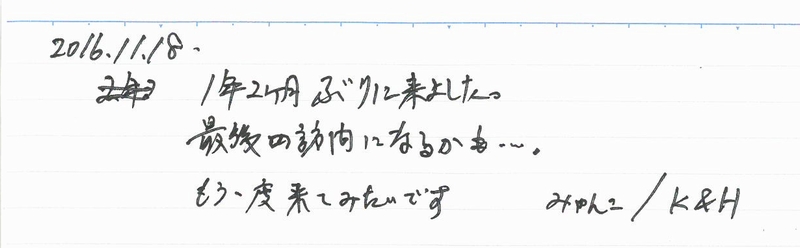 2016.11.18.
1年2ヶ月ぶりに来ました。
最後の訪問になるかも…。
もう一度来てみたいです みゃんこ / K&H